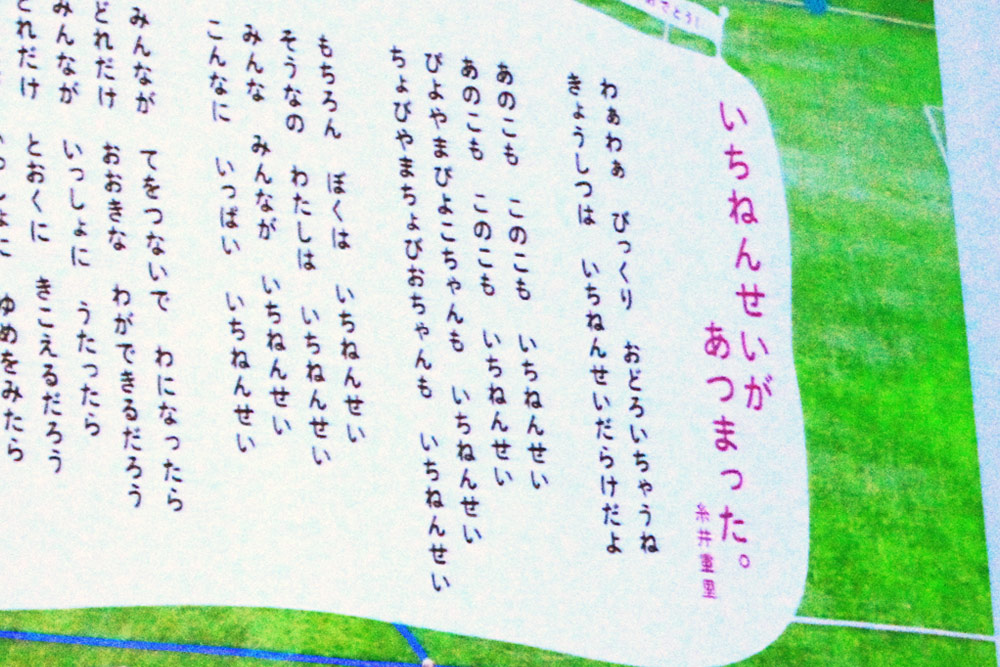 おめでとう!
いちねんせいが
あつまった。
糸井重里
わぁわぁ びっくり おどろいちゃうね
きょうしつは いちねんせいだらけだよ
あのこも このこも いちねんせい
あのこも このこも いちねんせい
ぴよやまぴよこちゃんも いちねんせい
ちょびやまちょびおちゃんも いちねんせい
もちろん ぼくは いちねんせい
そうなの わたしは いちねんせい
みんな みんなが いちねんせい
こんなに いっぱい いちねんせい
みんなが てをつないで わになったら
どれだけ おおきな わができるだろう
みんなが いっしょに うたったら
どれだけ とおくに きこえるだろう
ゆめをみたら